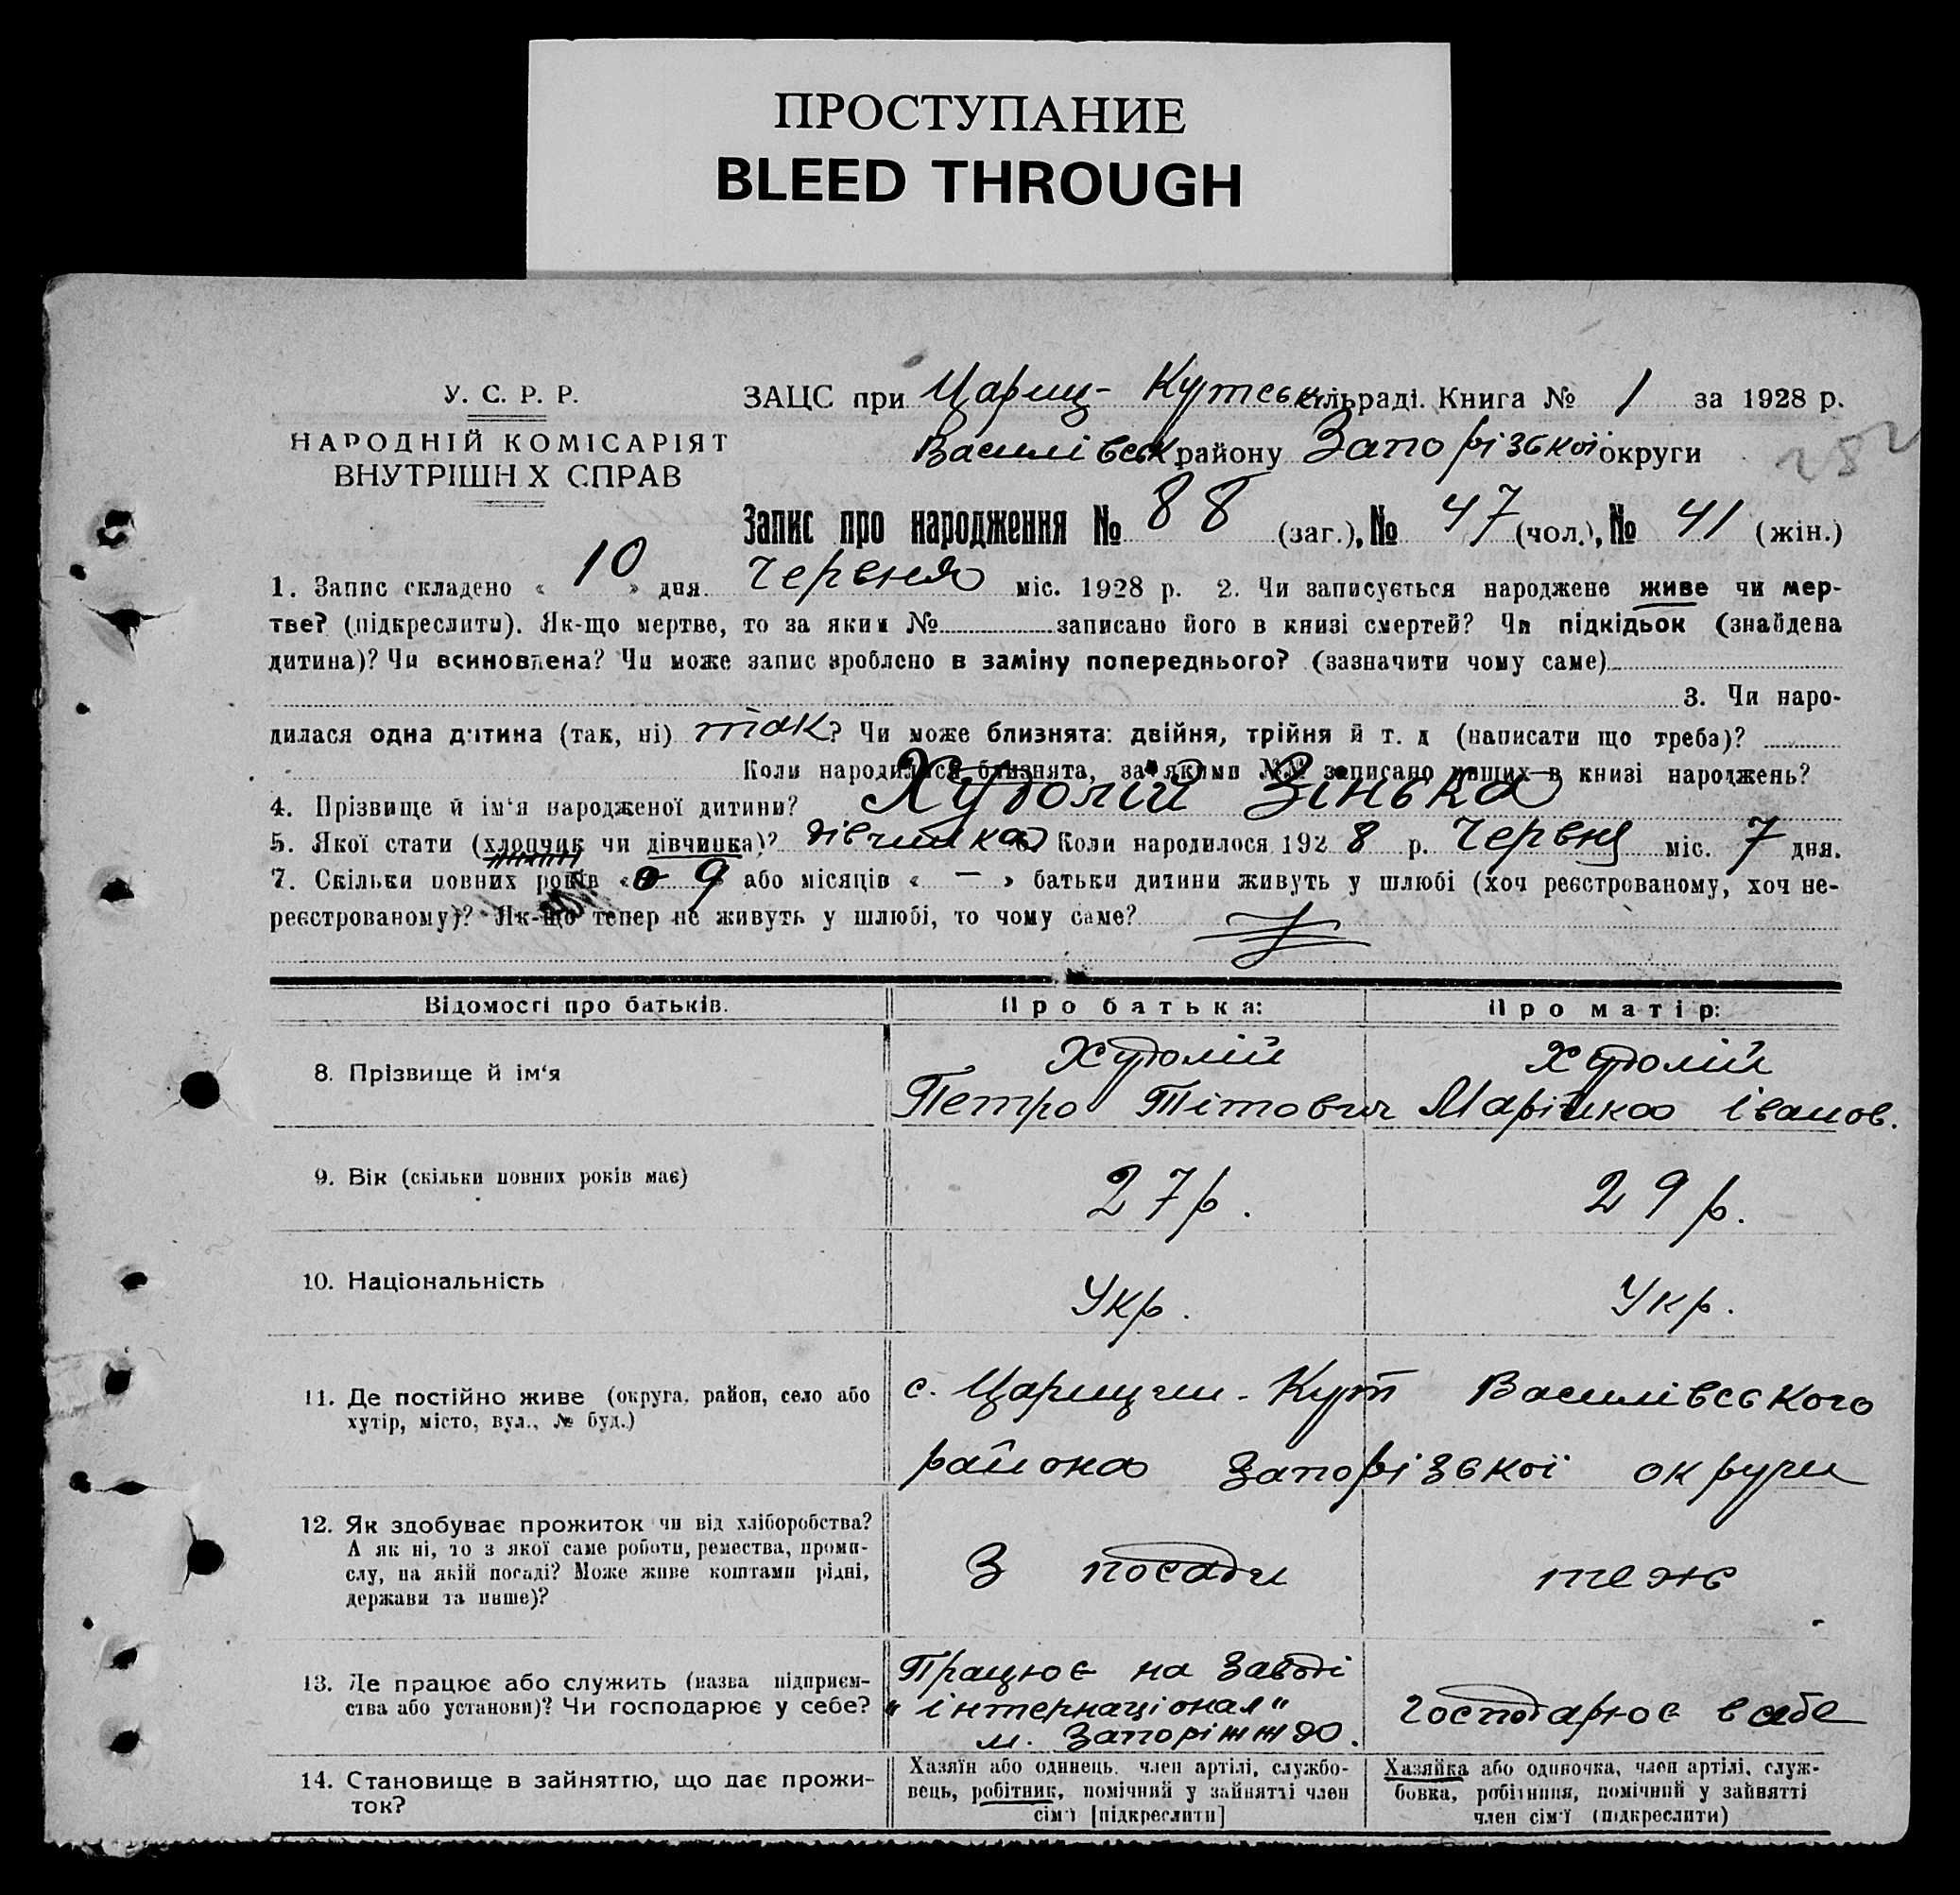 ПРОСТУПАНИЕ
BLEED THROUGH
У. С. Р. Р.
НАРОДНІЙ КОМІСАРІЯТ
ВНУТРІШН Х СПРАВ
ЗАЦС при Цариц- Кутськ сільраді. Книга № 1 за 1928 р.
Василівськ району Запорізької округи
282
Запис про народження № 88 (заг.), № 47 (чол.), № 41 (жін.)
1. Запис складено « 10 » дня Червня міс. 1928 р. 2. Чи записується народжене живе чи мер-
тве? (підкреслити). Як-що мертве, то за яким № записано його в книзі смертей? Чи підкідьок (знайдена
дитина)? Чи всиновлена? Чи може запис зроблено в заміну попереднього? (зазначити чому саме)
3. Чи наро-
дилася одна дитина (так, ні) так? Чи може близнята: двійня, трійня й т. д (написати що треба)?
Коли народилися близнята, за якими №№ записано инших в книзі народжень?
4. Прізвище й ім'я народженої дитини? Худолій Зінька
5. Якої стати (хлопчик чи дівчинка)? дівчинка Коли народилося 1928 р. Червня міс. 7 дня.
7. Скільки повних років « 9 » або місяців « — » батьки дитини живуть у шлюбі (хоч реєстрованому, хоч не-
реєстрованому)? Як-що тепер не живуть у шлюбі, то чому саме?
Відомості про батьків.
Про батька:
Про матір:
8. Прізвище й ім'я
Худолій
Петро Тітович
Худолій
Марійка Іванов.
9. Вік (скільки повних років має)
27 р.
29 р.
10. Національність
Укр.
Укр.
11. Де постійно живе (округа, район, село або
хутір, місто, вул., № буд.)
с. Царицин-Кут Василівського
района Запорізької округи
12. Як здобуває прожиток чи від хліборобства?
А як ні, то з якої саме роботи, ремества, проми-
слу, на якій посаді? Може живе коштами рідні,
держави та инше)?
З посади
теж
13. Де працює або служить (назва підприєм-
ства або установи)? Чи господарює у себе?
Працює на заводі
"інтернаціонал"
м. Запоріжжя.
господарює в себе
14. Становище в зайняттю, що дає прожи-
ток?
Хазяїн або одинець, член артілі, службо-
вець, робітник, помічний у зайнятті член
сім'ї [підкреслити]
Хазяйка або одиночка, член артілі, служ-
бовка, робітниця, помічний у зайнятті
член сім'ї (підкреслити)